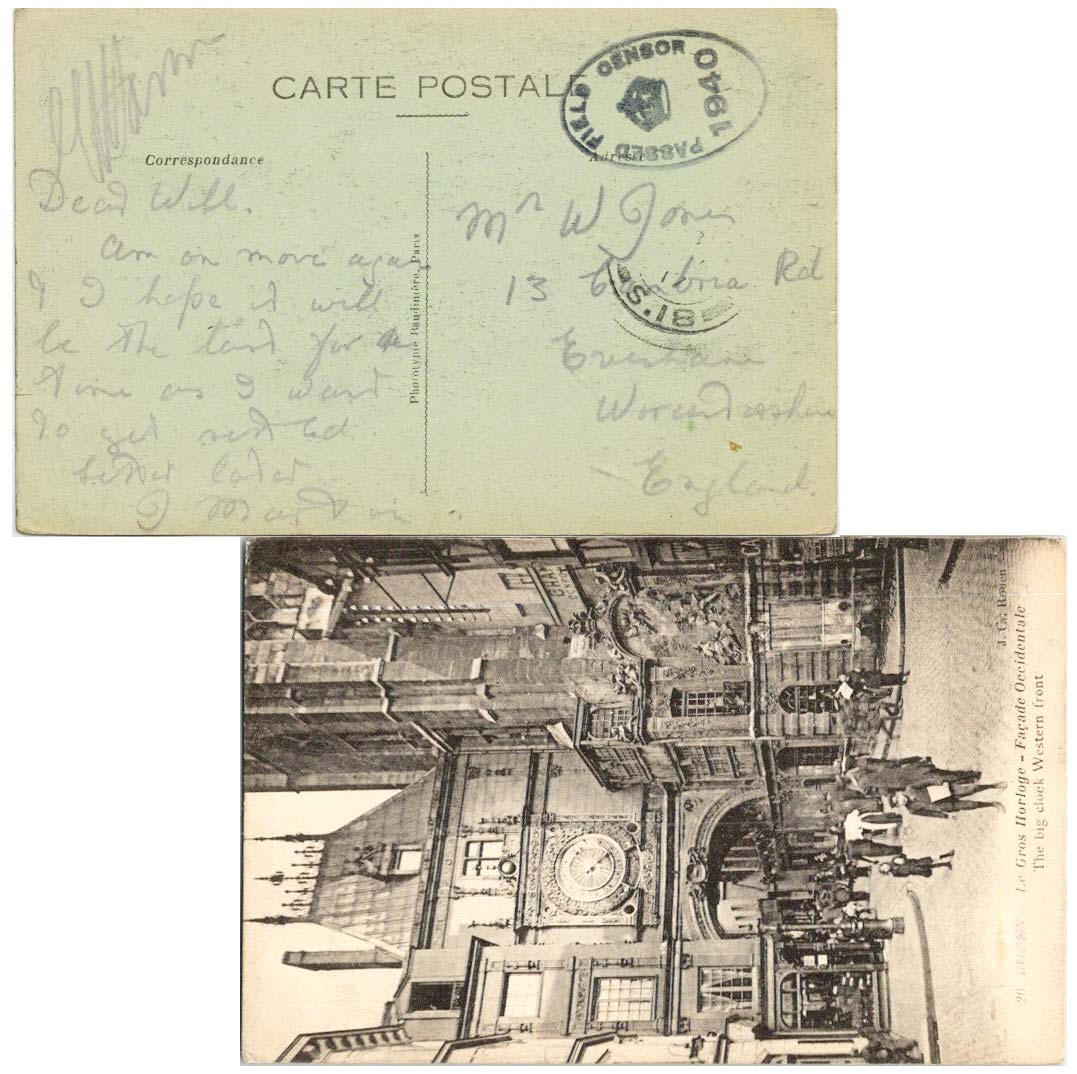 CARTE POSTALE
PASSED FIELD CENSOR 1940
Correspondance
Adresse
Dear Will.
Am on move again
& I hope it will
be the last for a
time as I want
to get settled
Letter later
J Martin
Phototypie Baudinière, Paris
Mr W Jones
13 Cambria Rd
Evesham
Worcestershire
England.
S.18
J. G., Rouen
20 ROUEN Le Gros Horloge - Façade Occidentale
The big clock Western front